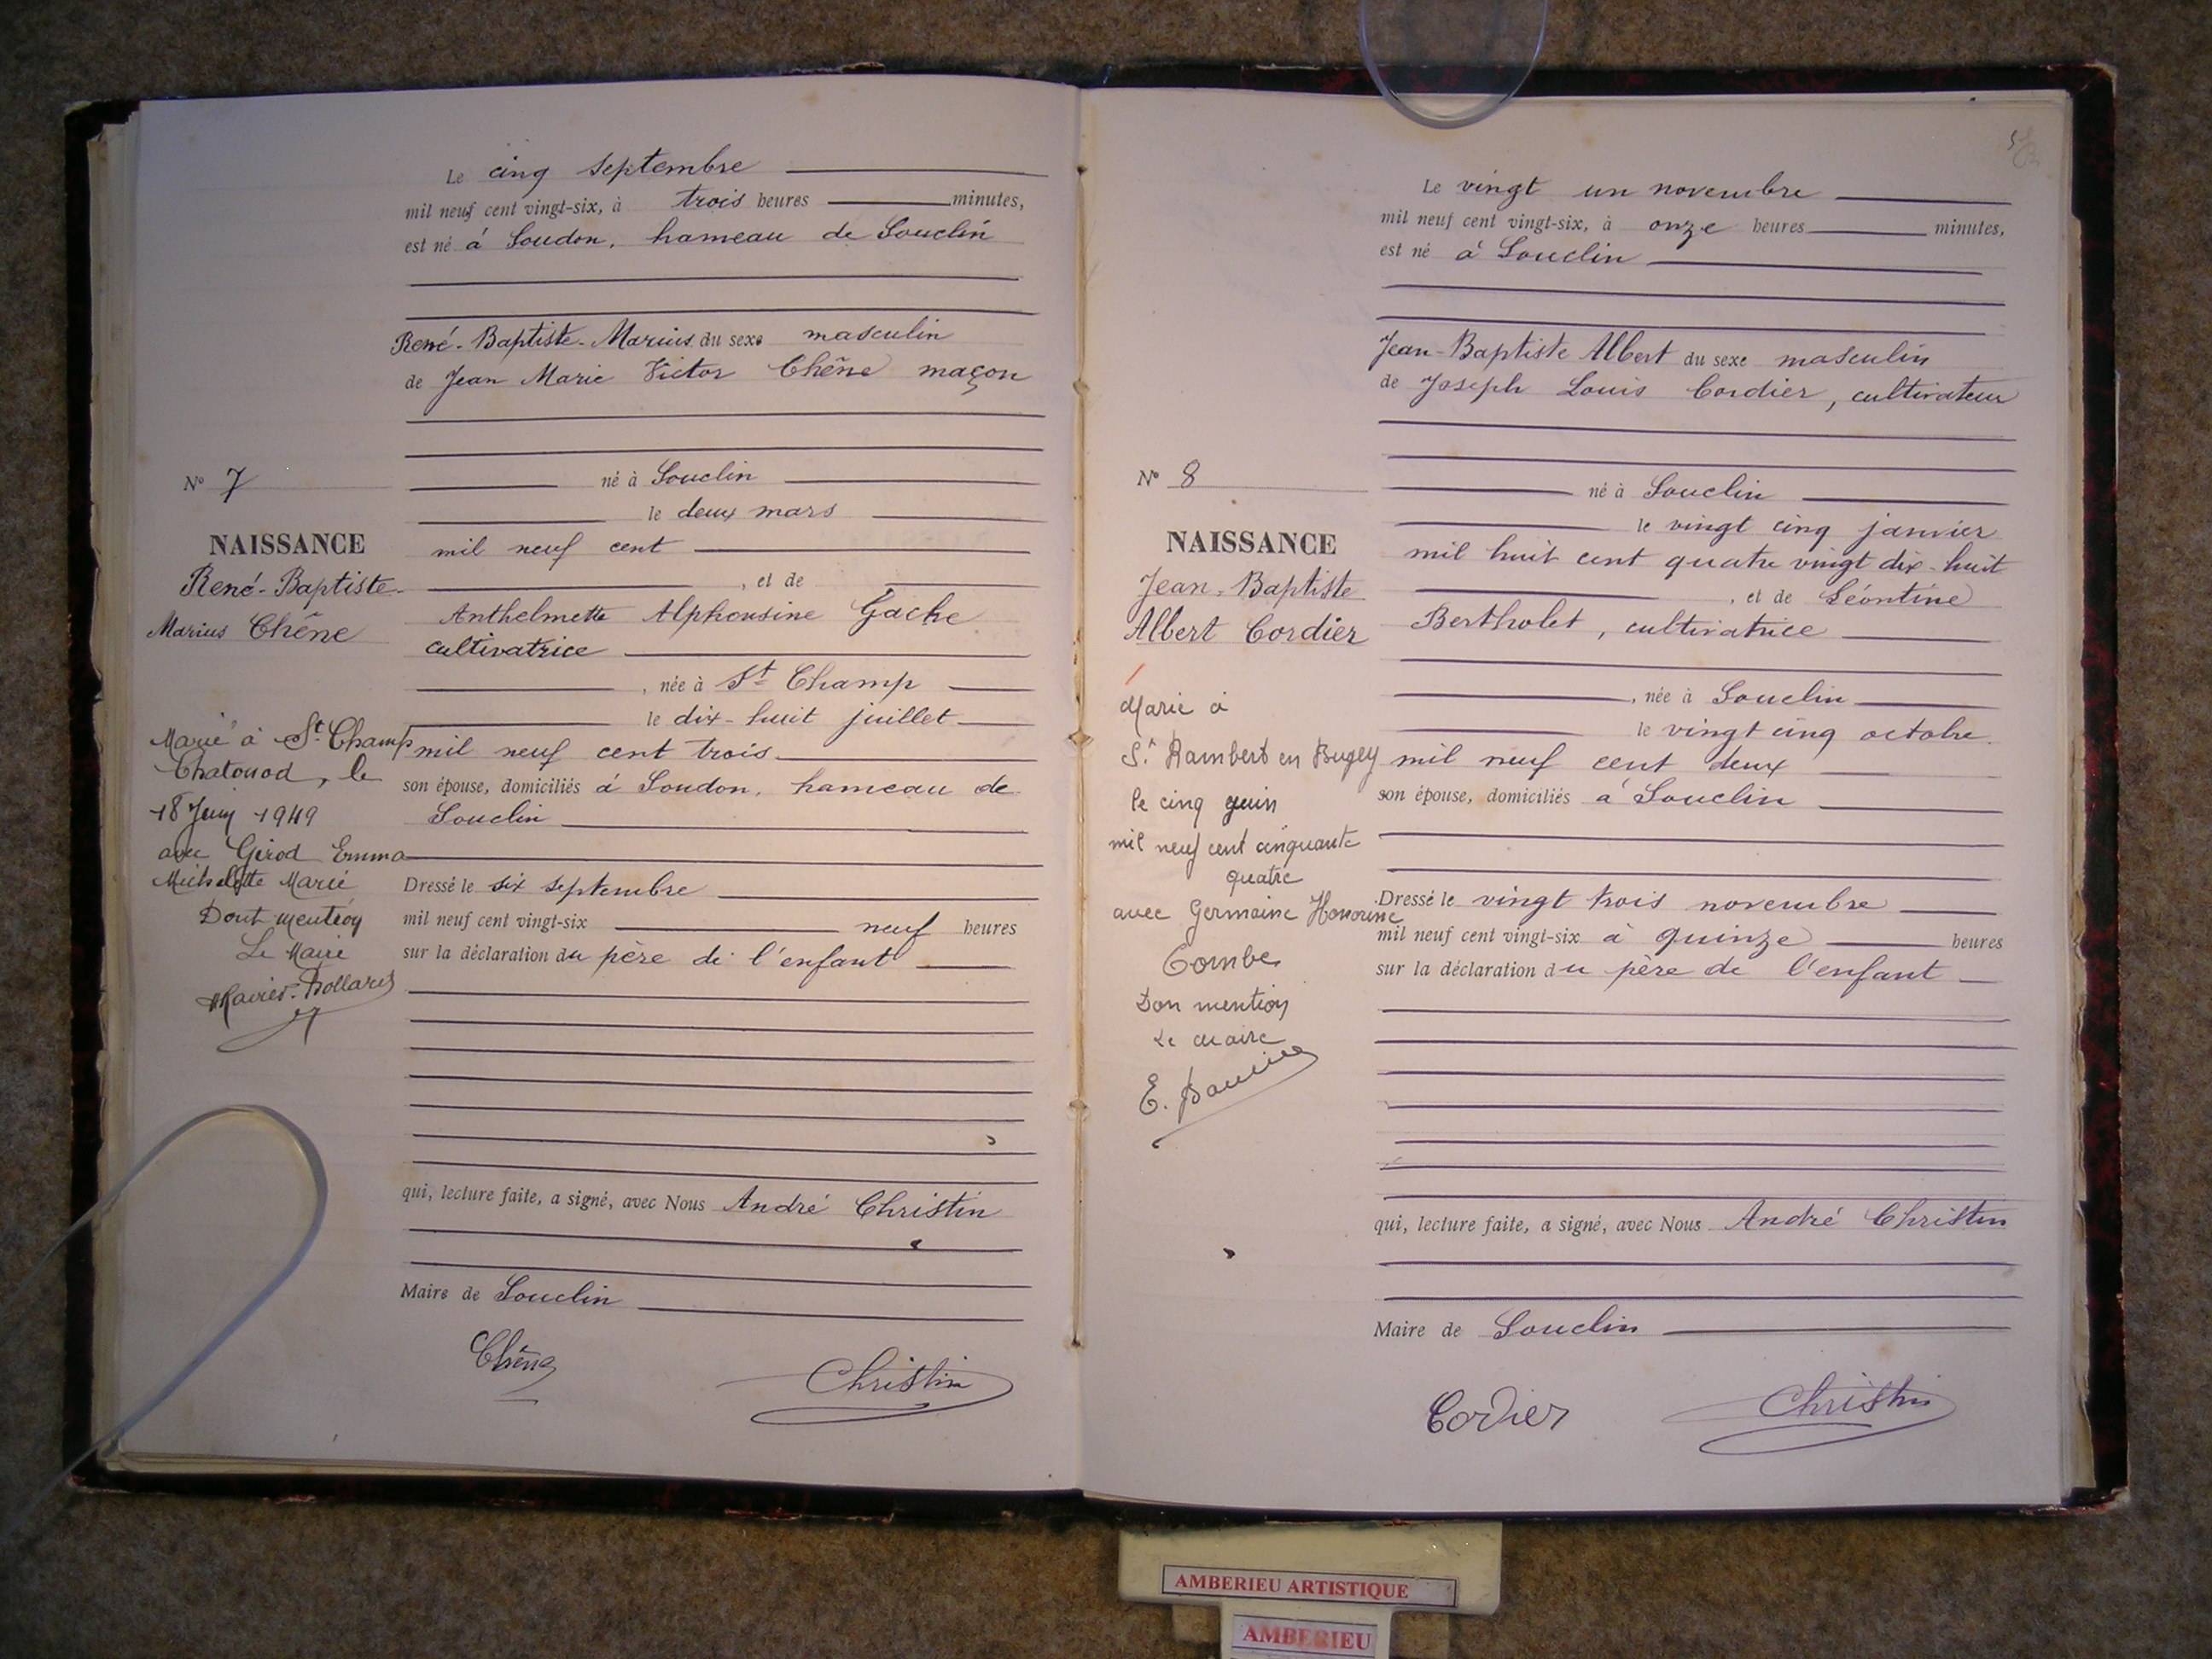 Le cinq septembre
mil neuf cent vingt-six, à trois heures minutes,
est né à Soudon, hameau de Souclin
René-Baptiste-Marius du sexe masculin
de Jean Marie Victor Chêne maçon
né à Souclin
le deux mars
mil neuf cent
, et de
Anthelmette Alphonsine Gache
cultivatrice
, née à St Champ
le dix-huit juillet
mil neuf cent trois
son épouse, domiciliés à Soudon, hameau de
Souclin
Dressé le six septembre
mil neuf cent vingt-six neuf heures
sur la déclaration du père de l'enfant
qui, lecture faite, a signé, avec Nous André Christin
Maire de Souclin
Chêne
Christin
No 7
NAISSANCE
René-Baptiste-
Marius Chêne
Marié à St Champ
Chatonod, le
18 Juin 1949
avec Girod Emma
Marie
Dont mention
Le Maire
Le vingt un novembre
mil neuf cent vingt-six, à onze heures minutes,
est né à Souclin
Jean-Baptiste Albert du sexe masculin
de Joseph Louis Cordier, cultivateur
né à Souclin
le vingt cinq janvier
mil huit cent quatre vingt dix-huit
, et de Léontine
Bertholet, cultivatrice
, née à Souclin
le vingt cinq octobre
mil neuf cent deux
son épouse, domiciliés à Souclin
Dressé le vingt trois novembre
mil neuf cent vingt-six à quinze heures
sur la déclaration du père de l'enfant
qui, lecture faite, a signé, avec Nous André Christin
Maire de Souclin
Cordier
Christin
No 8
NAISSANCE
Jean-Baptiste
Albert Cordier
Marié à
St Rambert en Bugey
le cinq juin
mil neuf cent cinquante
quatre
avec Germaine Honorine
Combe
Don mention
Le maire
AMBERIEU ARTISTIQUE
AMBERIEU